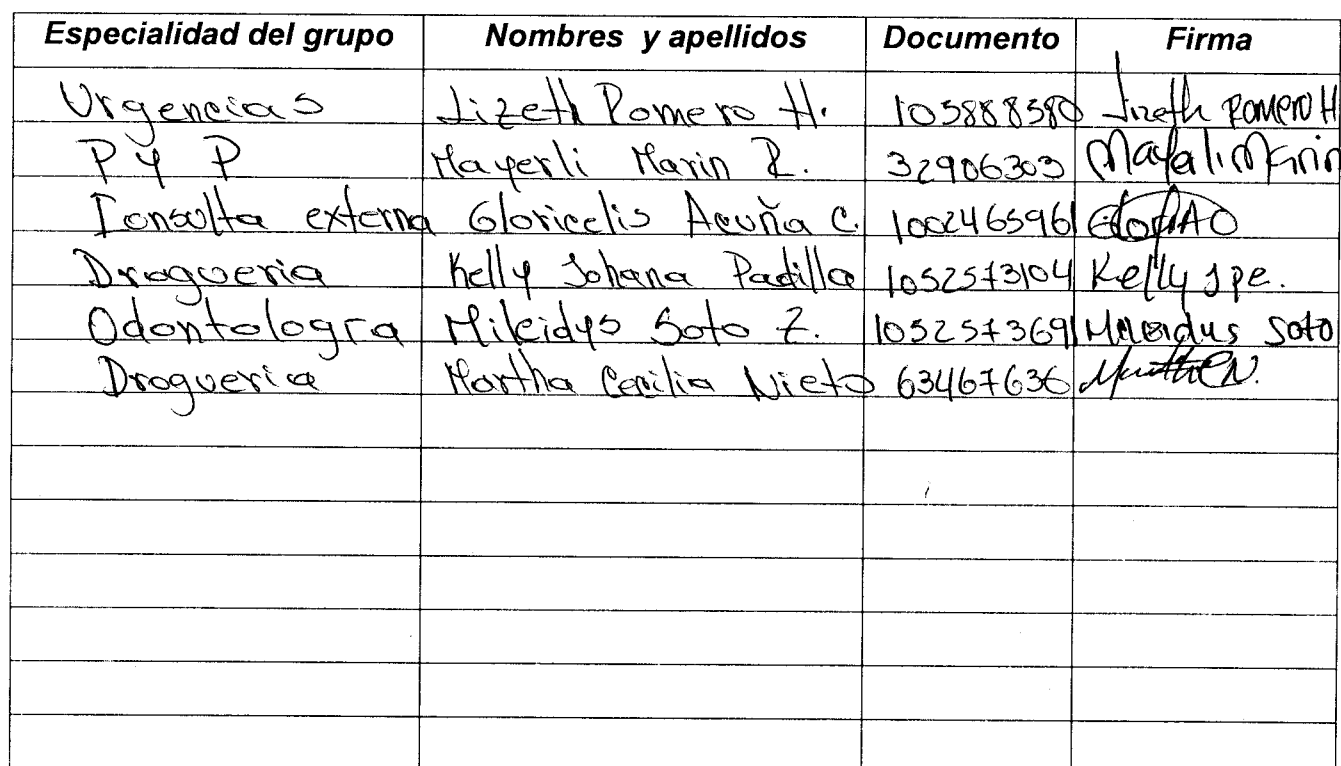 Especialidad del grupo Nombres y apellidos Documento Firma
Urgencias Lizeth Romero H. 105888580 Lizeth Romero H
P y P Mayerli Marin R. 32906303 Mayerli Marin
Consulta externa Gloricelis Acuña C. 1002465961
Drogueria Kelly Johana Padilla 1052573104 Kelly Jpe.
Odontologia Mileidys Soto Z. 1052573691 Mileidys Soto
Drogueria Martha Cecilia Nieto 63467636 Martha C N.